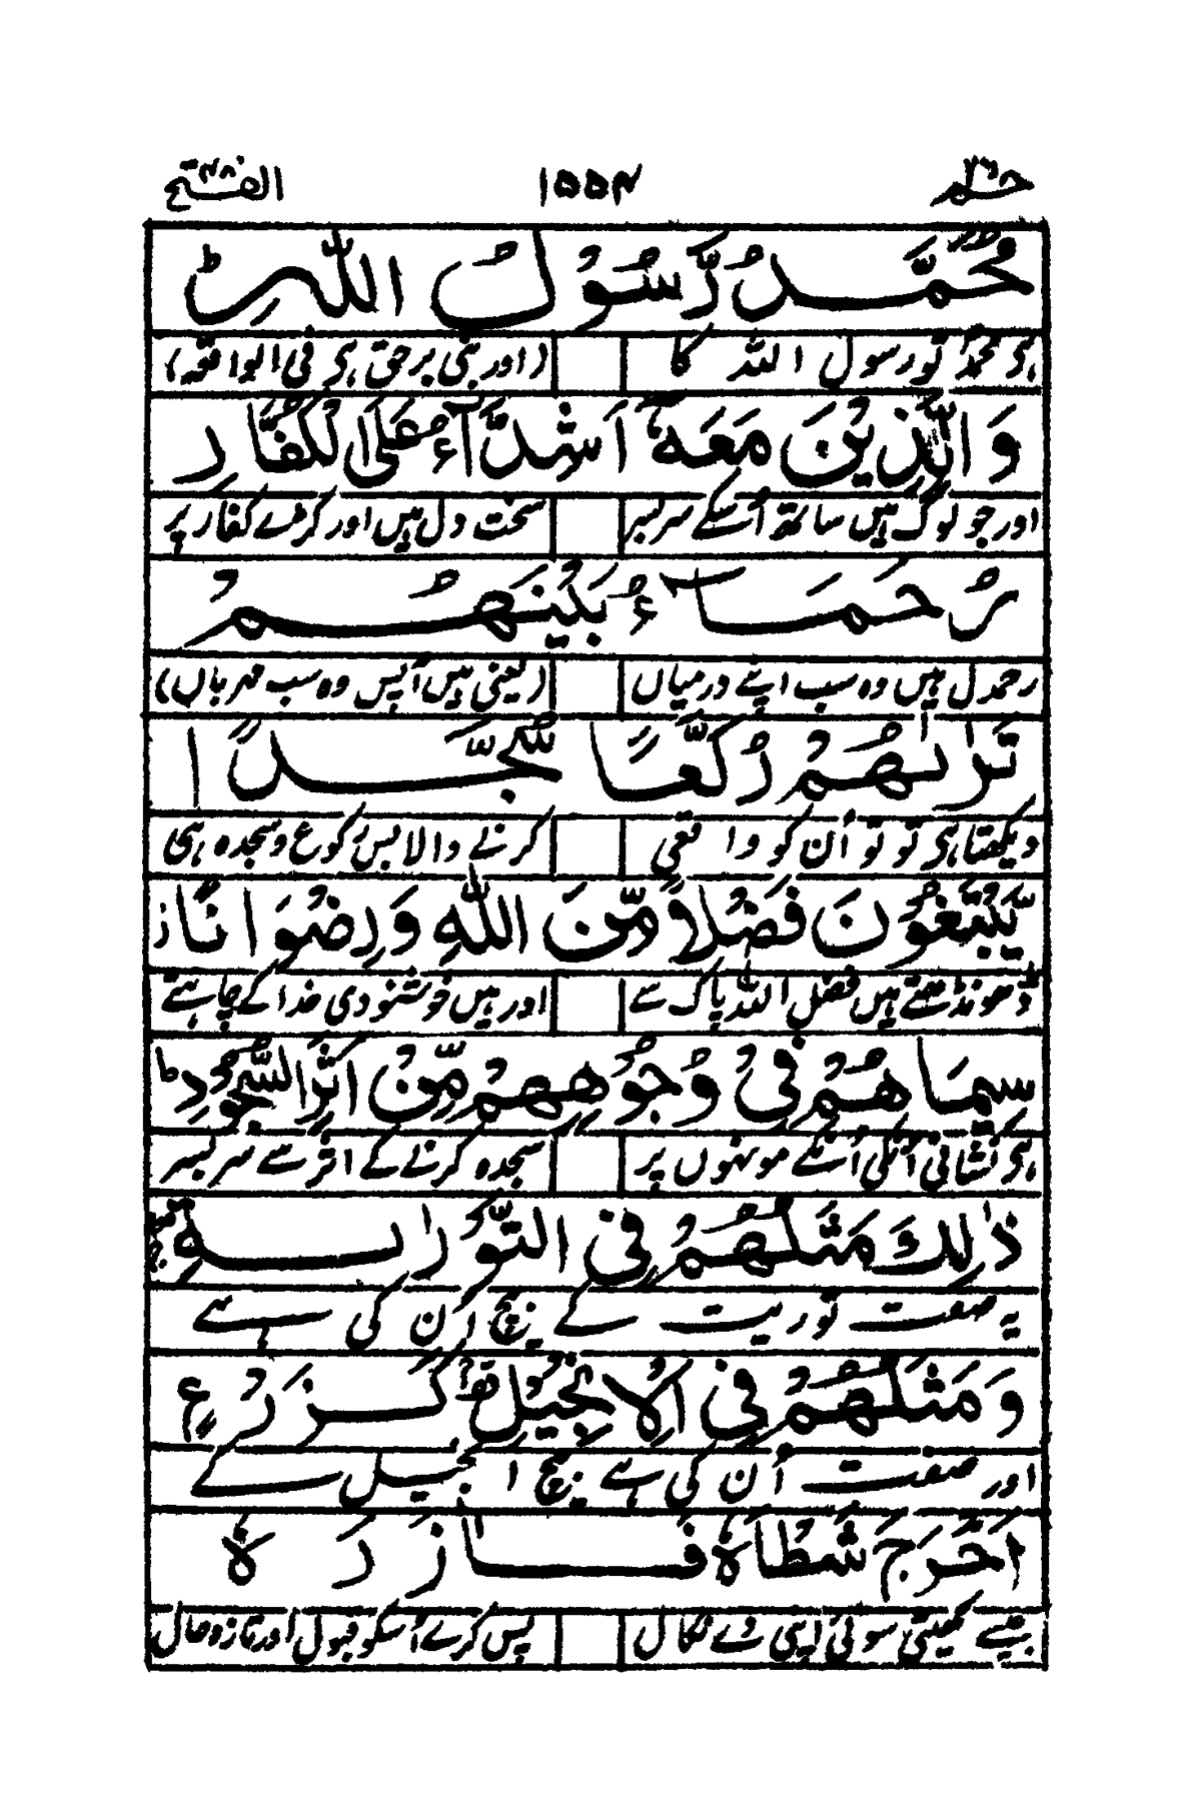 حٰمٓ ٢٦ ١٥٥٤ الفتح ٤٨
مُحَمَّدٌ رَّسُوْلُ اللّٰهِ ط
ہی محمدؐ تو رسول اللہ کا (اور نبی برحق ہی فی الواقعہ)
وَالَّذِيْنَ مَعَهٗٓ اَشِدَّآءُ عَلَى الْكُفَّارِ
اور جو لوگ ہیں ساتھ اُسکے سربسر سخت دل ہیں اور کڑے کفار پر
رُحَمَآءُ بَيْنَهُمْ
رحمدل ہیں وہ سب اپنے درمیاں (یعنی ہیں آپس وہ سب مہرباں)
تَرٰىهُمْ رُكَّعًا سُجَّدًا
دیکھتا ہی تو تو اُن کو واقعی کرنے والا بس رکوع و سجدہ ہی
يَّبْتَغُوْنَ فَضْلًا مِّنَ اللّٰهِ وَرِضْوَانًا ز
ڈھونڈھتے ہیں فضل اللہ پاک سے اور ہیں خوشنودی خدا کے چاہتے
سِيْمَاهُمْ فِيْ وُجُوْهِهِمْ مِّنْ اَثَرِ السُّجُوْدِ ط
ہی نشانی اُنکی اُنکے مونہوں پر سجدہ کرنے کے اثر سے سربسر
ذٰلِكَ مَثَلُهُمْ فِي التَّوْرٰىةِ
یہ صفت توریت کے بیچ اُن کی ہے
وَمَثَلُهُمْ فِي الْاِنْجِيْلِ كَزَرْعٍ
اور صفت اُن کی ہے بیچ انجیل کے
اَخْرَجَ شَطْاَهٗ فَاٰزَرَهٗ
جیسے کھیتی سوئی اپنی دے نکال پس کرے اُسکو قبول اور تازہ حال